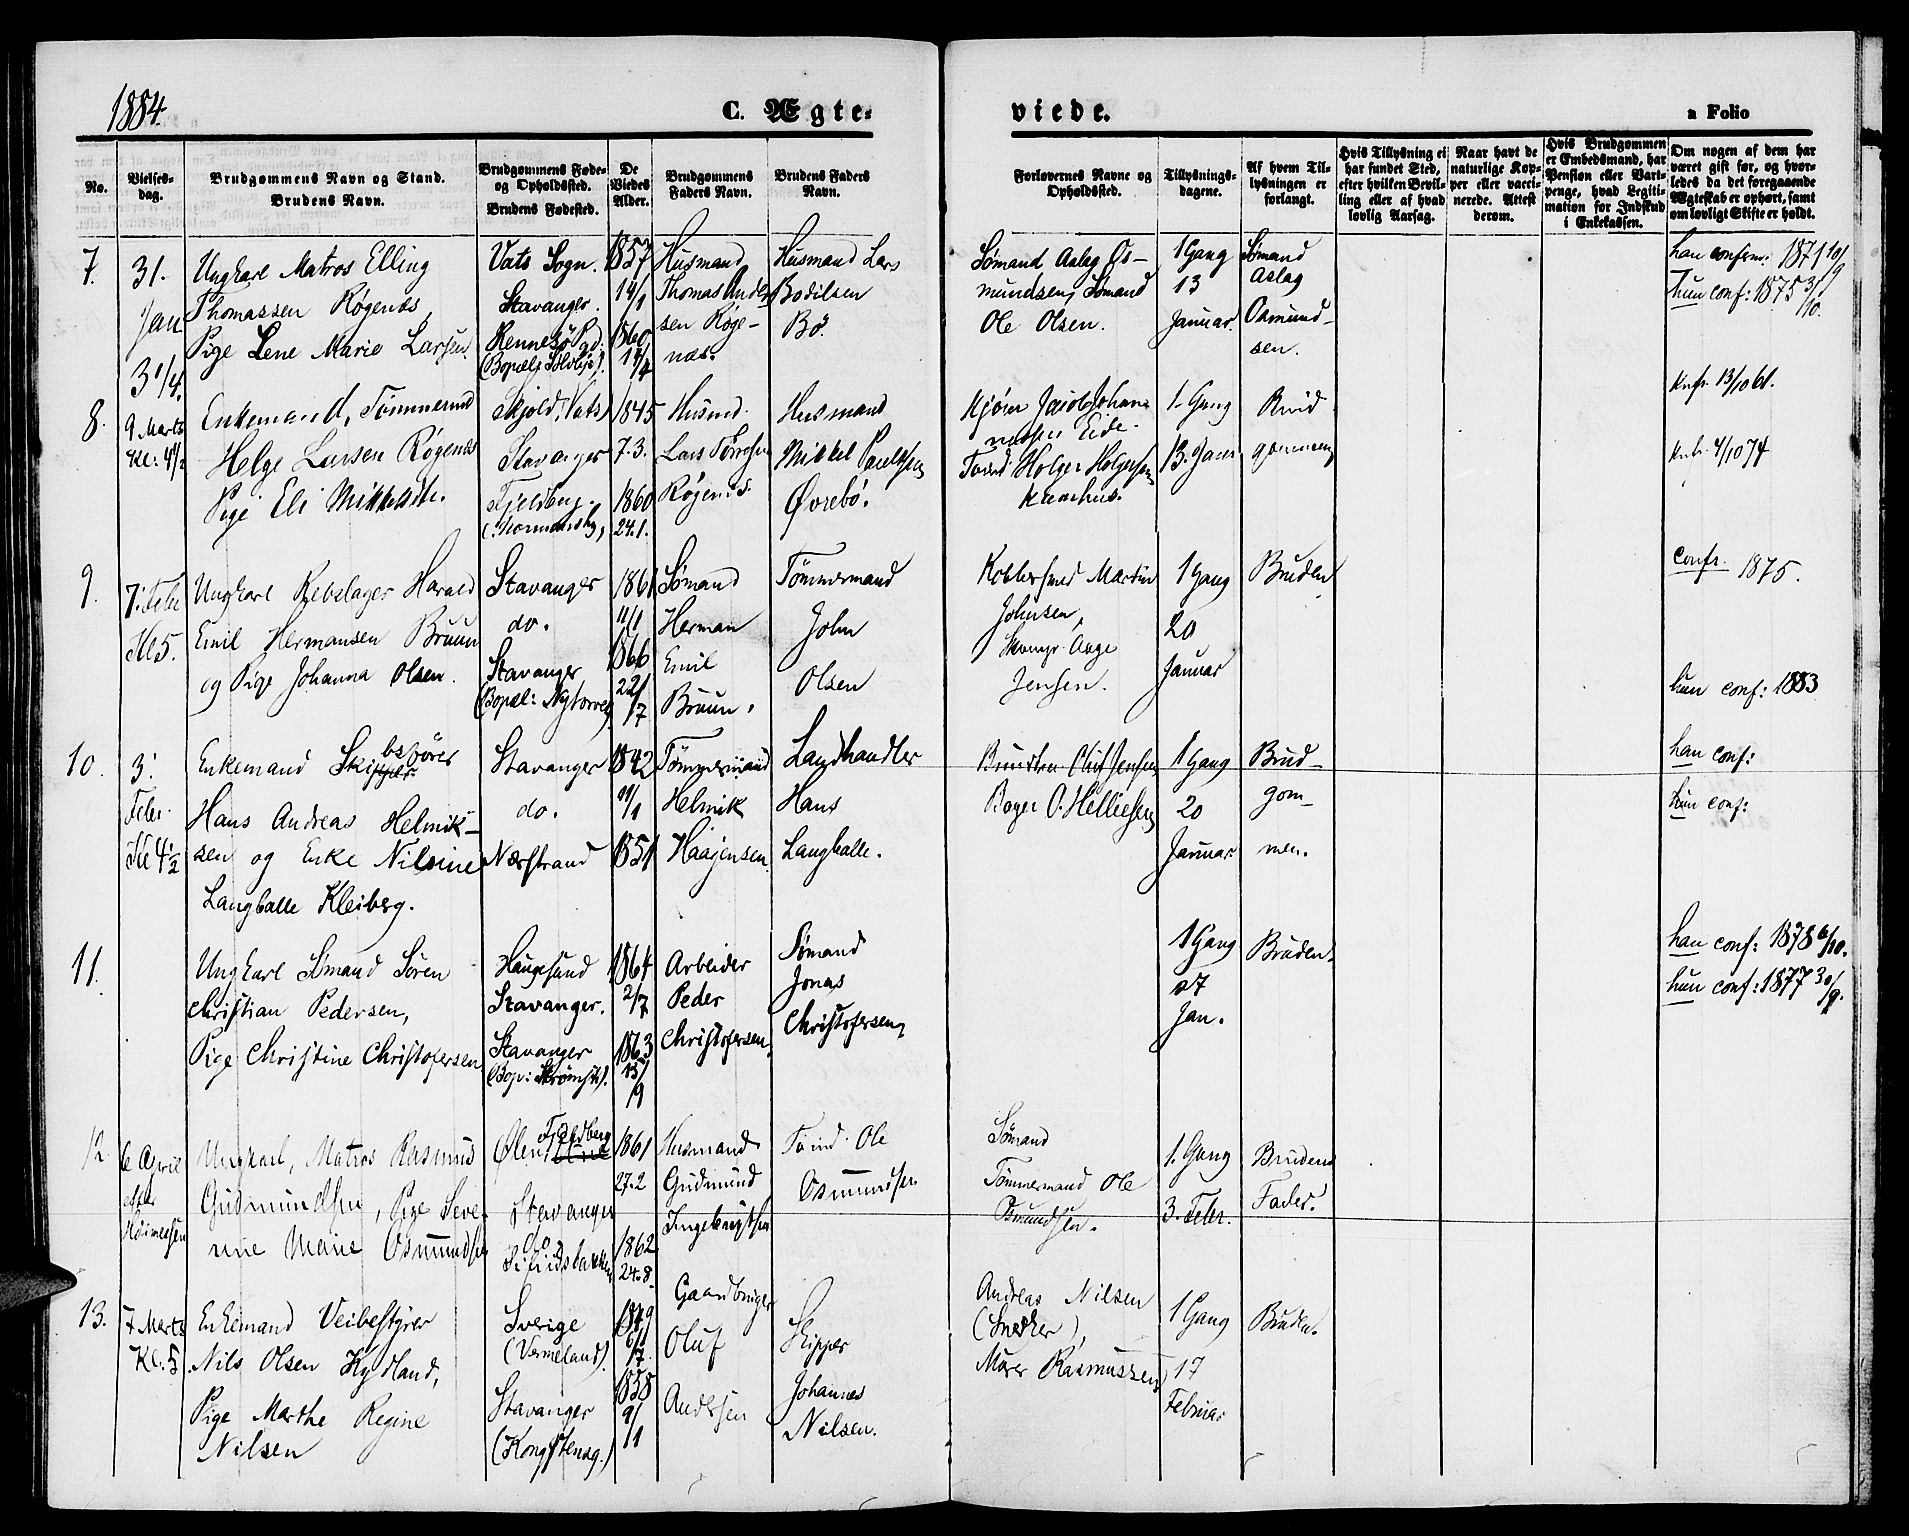 1884.
C. Ægte-
viede.
a Folio
No.
Vielses-
dag.
Brudgommens Navn og Stand.
Brudens Navn.
Brudgommens Føde-
og Opholdssted.
Brudens Fødested.
De
Viedes
Alder.
Brudgommens
Faders Navn.
Brudens Faders
Navn.
Forlovernes Navne og
Opholdssted.
Tillysnings-
dagene.
Af hvem Til-
lysningen er
forlangt.
Hvis Tillysning ei
har fundet Sted,
efter hvilken Bevil-
ling eller af hvad
lovlig Aarsag.
Naar havt de
naturlige Kop-
per eller vacci-
nerede. Attest
derom.
Hvis Brudgommen
er Embedsmand, har
Pension eller Vart-
penge, hvad Legiti-
mation for Indskud
i Enkekassen.
Om nogen af dem har
været gift før, og hvor-
ledes da det foregaaende
Ægteskab er ophørt, samt
om lovligt Skifte er holdt.
7.
31.
Jan
3 1/4.
Ungkarl Matros Elling
Thomassen Røgenæs,
Pige Lene Marie Larsen.
Vats Sogn.
Stavanger.
Rennesø Pgd.
1857
14/1
1860
14/4
Husmand
Thomas Ander-
sen Røge-
næs.
Husmand Lars
Bodilsen
Bø.
Sømand Aslag Os-
mundsen, Sømand
Ole Olsen.
1 Gang
13
Januar
Sømand
Aslag
Osmund-
sen.
han confirm. 1871 10/9
hun conf: 1875 3/10.
8.
9 Marts
Kl: 4 1/2
Enkemand, Tømmermd
Helge Larsen Røgenæs
Pige Eli Mikkelsdtr.
Skjold (Vats)
Stavanger
Fjeldberg.
1845
7.3.
1860
24.1.
Husmd.
Lars Tørresen
Røgenæs.
Husmand
Mikkel Paulsen
Øvrebø.
Jacob Johan-
nessen Eide.
Holger Holgersen
1. Gang
13. Jan.
Brud
gommen
Knfr. 13/10 61.
Knfr. 4/10 74
9.
7. Febr
Kl 5.
Ungkarl Rebslager Harald
Emil Hermansen Bruun
og Pige Johanna Olsen.
Stavanger
do.
Stavanger
(Bopæl: Nytorvet)
1861
11/1
1866
22/7
Sømand
Herman
Emil
Bruun.
Tømmermand
John
Olsen
Kobbersmed Martin
Johnsen,
Skomgr. Aage
Jensen.
1 Gang
20
Januar
Bruden
confr. 1875.
hun conf: 1883
10.
3.
Febr.
Kl 4 1/2
Enkemand Skibsfører
Hans Andreas Helmik-
sen og Enke Nilsine
Langballe Kleiberg.
Stavanger
do.
Nærstrand
1842
11/1
1851
Tømmermand
Helmik
Haajensen
Landhandler
Hans
Langballe.
Oluf Jensen
Bager O. Helliesen
1 Gang
20
Januar
Brud-
gom-
men.
han conf:
hun conf:
11.
Ungkarl Sømand Søren
Christian Pedersen,
Pige Christine Christofersen
Haugesund
Stavanger.
Stavanger
(Bop: Strømst).
1864
2/7
1863
13/9
Arbeider
Peder
Christofersen.
Sømand
Jonas
Christofersen,
1 Gang
27
Jan.
Bruden.
han conf: 1878 6/10.
hun conf: 1877 30/9.
12.
6 April
efter
Ungkarl, Matros Rasmus
Gudmundsen, Pige Seve-
rine Marie Osmundsen
Ølen Fjeldberg
Stavanger
do
1861
27.2
1862
24.8.
Husmand
Gudmund
Ingebrigtsen
Ole
Osmundsen
Sømand
Tømmermand Ole
Osmundsen.
1. Gang
3. Febr.
Brudens
Fader.
13.
7 Marts
Kl: 5
Enkemand Veibestyrer
Nils Olsen Kydland,
Pige Marthe Regine
Nilsen
Sverige
(Vermeland).
Stavanger
(Kongstensg.)
1849
6/7
1858
9/1
Gaardbruger
Oluf
Andersen
Skipper
Johannes
Nilsen.
Andreas Nilsen
(Snedker),
Murer Rasmussen
1 Gang
17
Februar
Bruden.